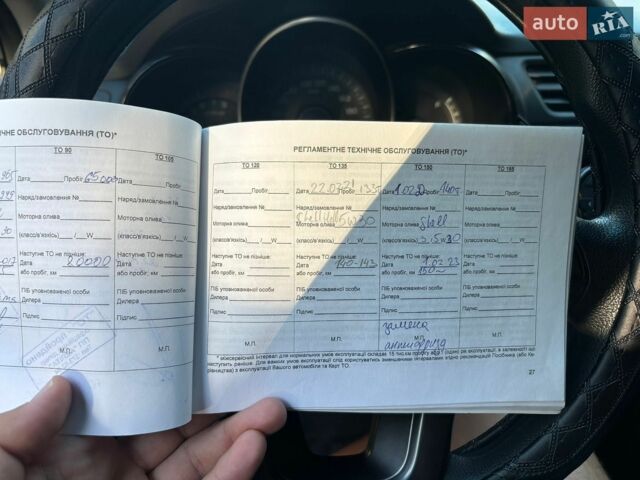 auto RIA.com
ЧНЕ ОБСЛУГОВУВАННЯ (ТО)*
ТО 90
ТО 105
Дата Пробіг 65 000
Дата Пробіг
Наряд/замовлення №
Наряд/замовлення №
Моторна олива
Моторна олива
(класс/в'язкість) / W
(класс/в'язкість) / W
Наступне ТО не пізніше:
Наступне ТО не пізніше:
Дата
Дата
або пробіг, км
або пробіг, км
ПІБ уповноваженої особи
ПІБ уповноваженої особи
Дилера
Дилера
Підпис
Підпис
М.П.
М.П.
РЕГЛАМЕНТНЕ ТЕХНІЧНЕ ОБСЛУГОВУВАННЯ (ТО)*
ТО 120
ТО 135
ТО 150
ТО 165
Дата Пробіг
Дата 22.07.21 Пробіг 133т
Дата Пробіг 140т
Дата Пробіг
Наряд/замовлення №
Наряд/замовлення №
Наряд/замовлення №
Наряд/замовлення №
Моторна олива
Моторна олива Shell 5w30
Моторна олива Shell
Моторна олива
(класс/в'язкість) / W
(класс/в'язкість) / W
(класс/в'язкість) 5w30
(класс/в'язкість) / W
Наступне ТО не пізніше:
Наступне ТО не пізніше:
Наступне ТО не пізніше:
Наступне ТО не пізніше:
Дата
Дата 140-143
Дата 1.02.23
Дата
або пробіг, км
або пробіг, км
або пробіг, км 150
або пробіг, км
ПІБ уповноваженої особи
ПІБ уповноваженої особи
ПІБ уповноваженої особи
ПІБ уповноваженої особи
Дилера
Дилера
Дилера
Дилера
Підпис
Підпис
Підпис
Підпис
М.П.
М.П.
замена
антифриза
М.П.
* міжсервісний інтервал для нормальних умов експлуатації складає 15 тис.км пробігу або 1 (один) рік експлуатації, в залежності що
наступить раніше. Для важких умов експлуатації слід користуватись зменшеним інтервалами згідно рекомендацій Посібника (або Ке-
рівництва) з експлуатації Вашого автомобіля та Карт ТО.
27